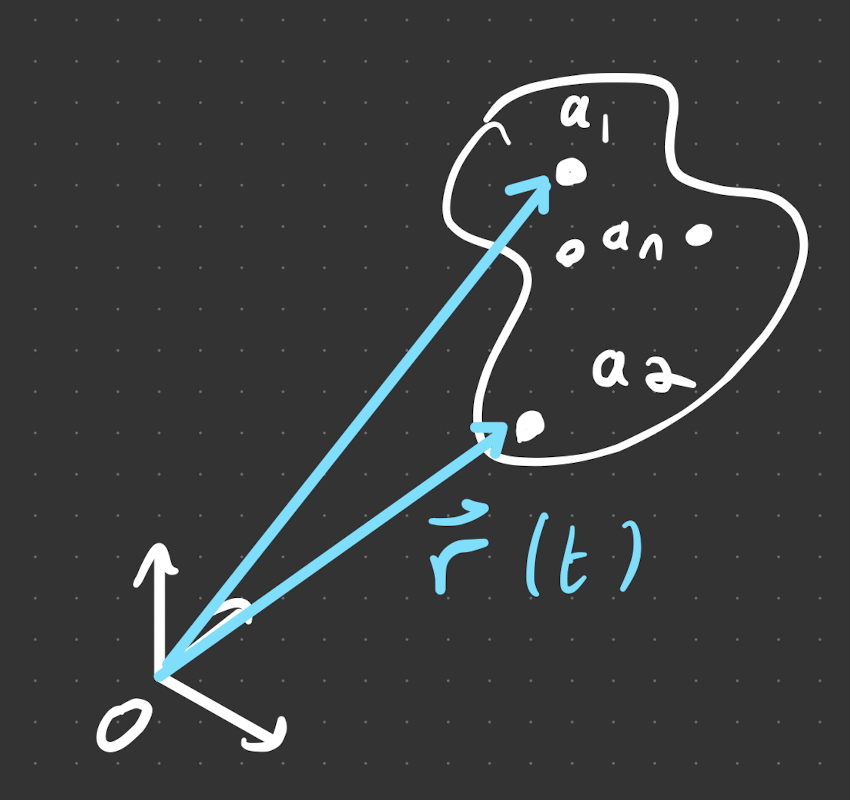 a₁
aₙ
a₂
r⃗ (t)
O